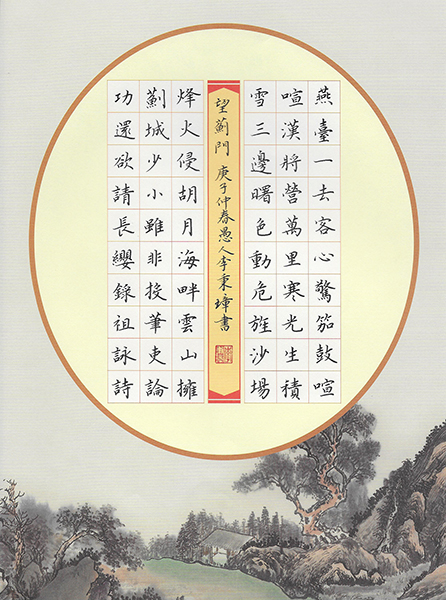 燕臺一去客心驚笳鼓喧
喧漢將營萬里寒光生積
雪三邊曙色動危旌沙場
望薊門 庚子仲春愚人李秉璋書
烽火侵胡月海畔雲山擁
薊城少小雖非投筆吏論
功還欲請長纓錄祖詠詩